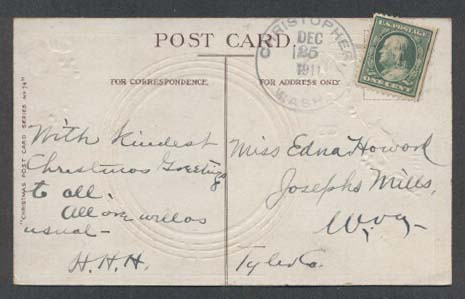 POST CARD
CHRISTOPHER,
DEC
25
1911
WASH.
U.S. POSTAGE
ONE CENT
FOR CORRESPONDENCE.
FOR ADDRESS ONLY
"CHRISTMAS POST CARD SERIES No 74"
With Kindest
Christmas Greetings
to all.
All are well as
usual -
H.H.H.
Miss Edna Howard
Josephs Mills,
W. Va -
Tyler Co.